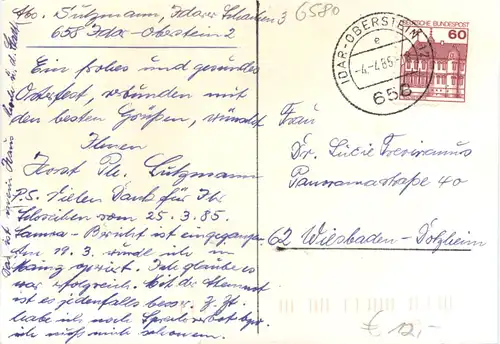 Abs. Lützmann, Idarer Schachen 3
658 Idar-Oberstein 2
6580
Ein frohes und gesundes
Osterfest, verbunden mit
den besten Grüßen, wünscht
Ihnen
Horst Ph. Lützmann
P.S. Vielen Dank für Ihr
Schreiben vom 25.3.85.
Bericht ist eingegangen
Am 19.3. wurde ich in
operiert. Ich glaube es
war erfolgreich. Mit der
ist es jedenfalls besser. Z. Zt.
habe ich noch Sprechverbot bzw.
ich muß mich schonen.
Das ist mein Haus
IDAR-OBERSTEIN
e
-4.-4.85-
658
DEUTSCHE BUNDESPOST
60
Frau
Dr. Lucie Treviranus
Panoramastraße 40
62 Wiesbaden-Dotzheim
€ 12,-